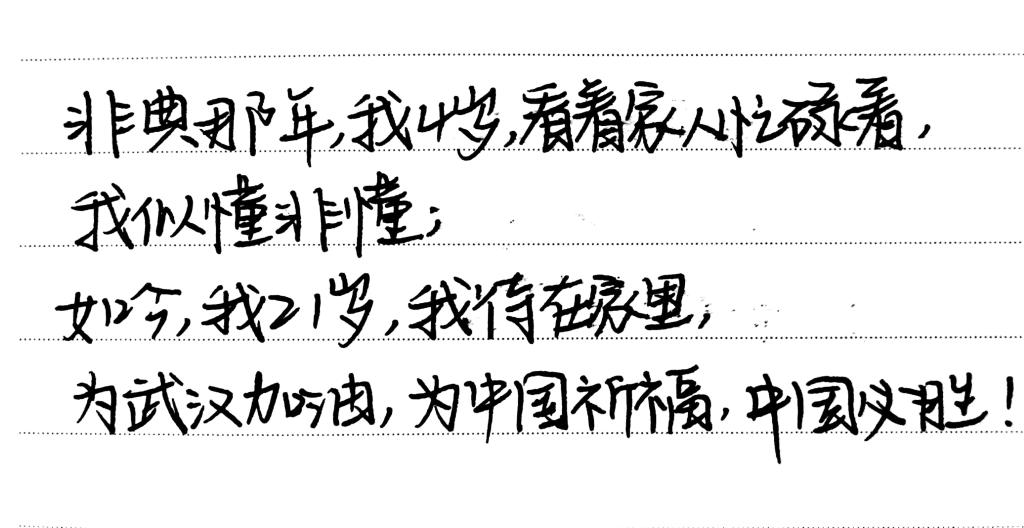 非典那年,我4岁,看着家人忙碌着,
我似懂非懂;
如今,我21岁,我待在家里,
为武汉加油,为中国祈福,中国必胜!